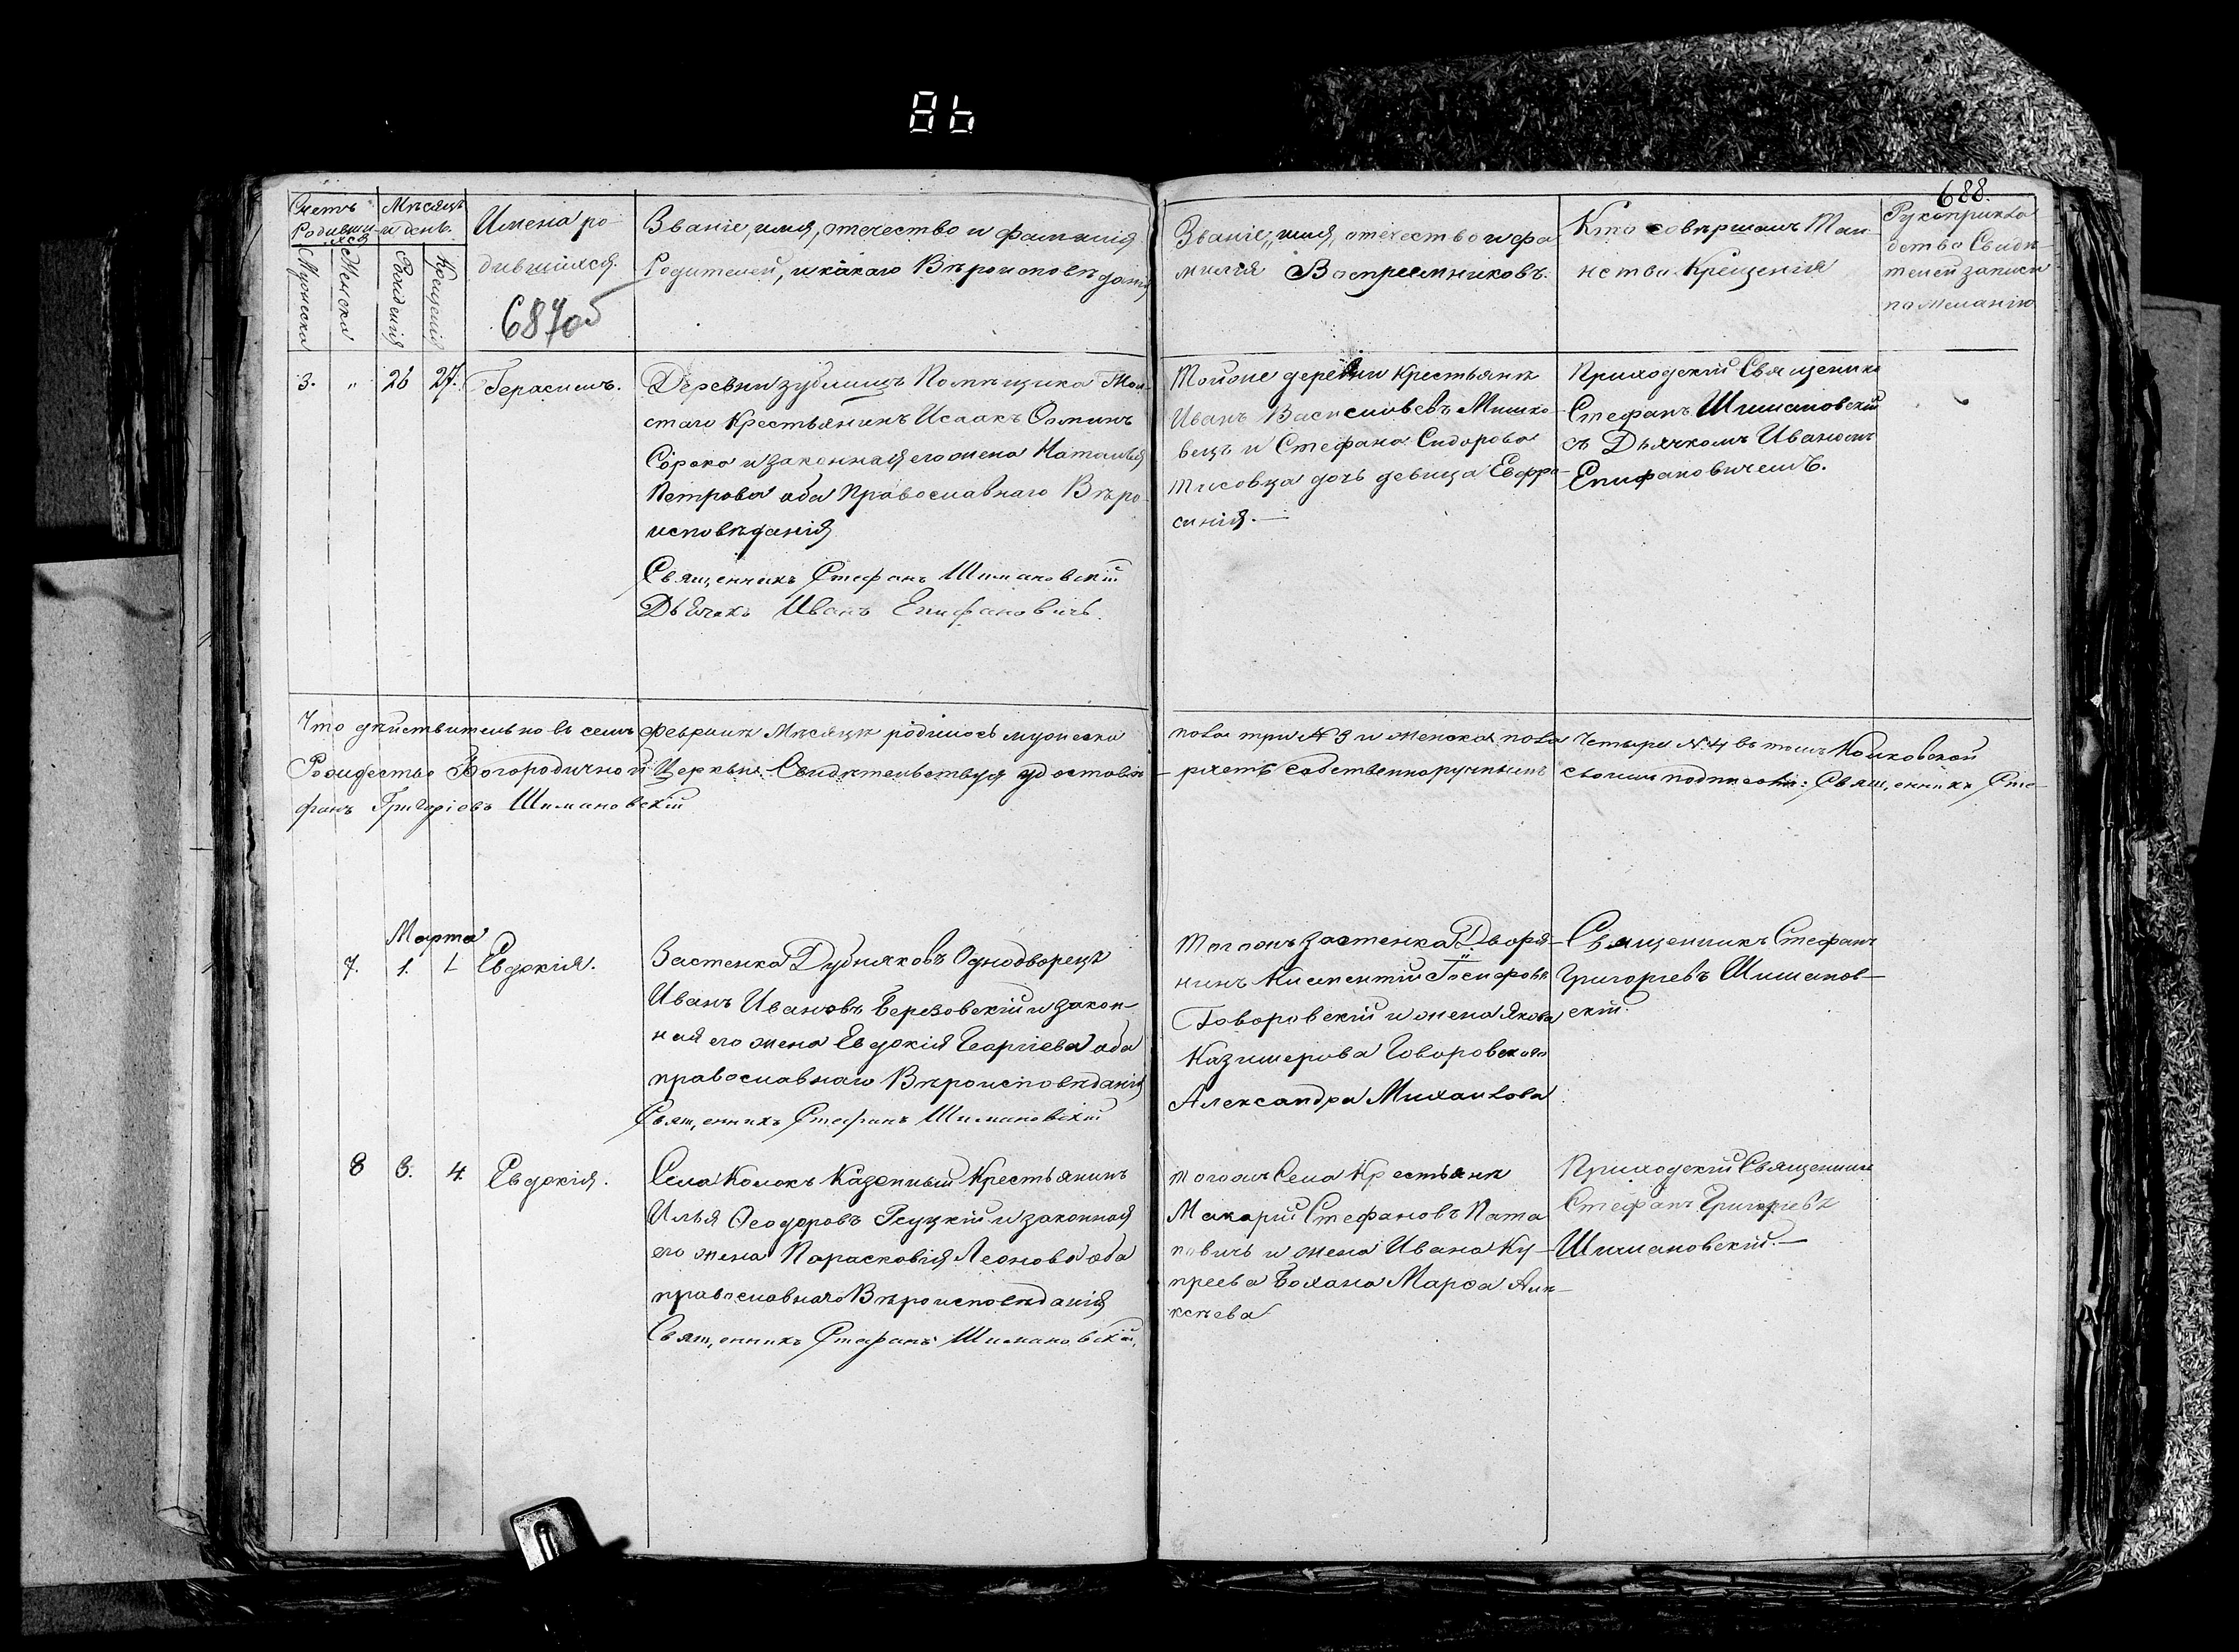 86
688.
Счетъ Родившихся
Мужеска
Женска
Мѣсяцъ и день.
Рожденія
Крещенія
Имена ро-
дившихся.
Званіе, имя, отечество и фамилія
Родителей, и какого Вѣроисповѣданія
Званіе, имя, отечество и фа
милія Воспреемниковъ.
Кто совершалъ Таи-
нство Крещенія
Рукоприкла
дство Свидѣ
телей записи
по желанію
3. " 26 27. Герасимъ.
Деревни Зублищъ Помѣщика Тол-
стаго Крестьянинъ Исаакъ Ѳоминъ
Сорока и законная его жена Наталья
Петрова оба Православнаго Вѣро-
исповѣданія
Священникъ Стефанъ Шимановскій
Дьячекъ Иванъ Епифановичъ.
Тойже деревни Крестьяне
Иванъ Васильевъ Мишко-
вецъ и Стефана Сидорова
дочь девица Евфро-
синія.—
Приходскій Священикъ
Стефанъ Шимановскій
съ Дьячкомъ Иваномъ
Епифановичемъ.
Что дѣйствительно въ семъ Февралѣ Мѣсяцѣ родилось мужеска пола три № 3 и женска пола Четыре № 4 въ томъ Колковской
Рождество Богородичной Церкви Свидѣтельствуя собственноручнымъ своимъ подписомъ: Священникъ Сте-
фанъ Григоріевъ Шимановскій
Марта
7. 1. 1 Евдокія.
Застенка Дубняковъ Однодворецъ
Иванъ Ивановъ Березовскій и закон-
ная его жена Евдокія Георгіева оба
православнаго Вѣроисповѣданія
Священникъ Стефанъ Шимановскій
Тогожъ Застенка Дворя-
нинъ Іосифовъ
Говоровскій и жена Якова
Казимерова Говоровскаго
Александра Михаилова
Священникъ Стефанъ
Григорьевъ Шиманов-
скій.
8 3. 4. Евдокія.
Села Колокъ Казенный Крестьянинъ
Илья Ѳеодоровъ и законная
его жена Парасковія Леонова оба
православнаго Вѣроисповѣданія
Священникъ Стефанъ Шимановскій.
тогожъ Села Крестьяне
Макарій Стефановъ Пата
повичъ и жена Ивана Ку-
преева Марѳа Але-
ксѣева
Приходскій Священникъ
Стефанъ Григорьевъ
Шимановскій.—